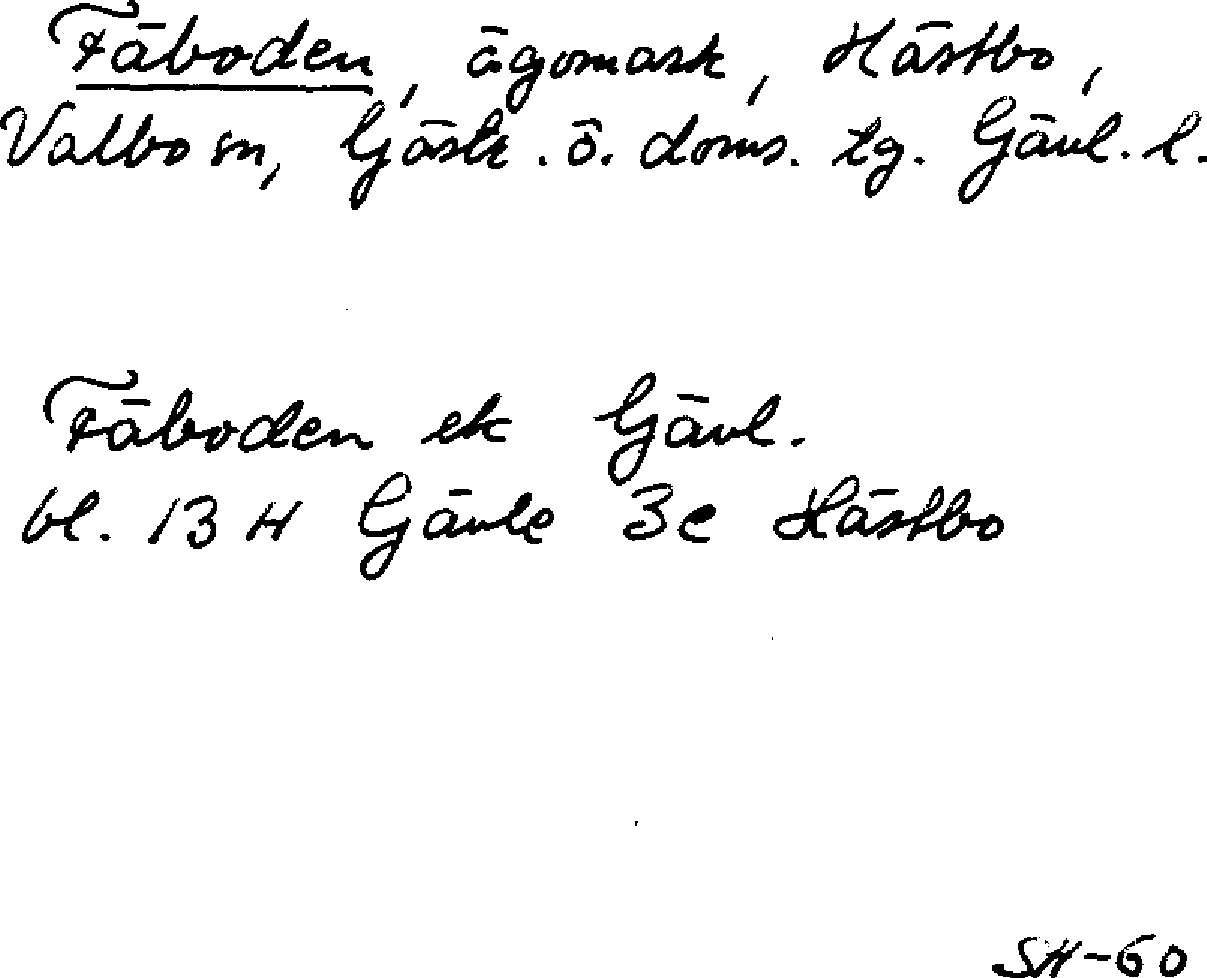 Fäboden, ägomark, Hästbo,
Valbo sn, Gästr. ö. doms. tg. Gävl. l.
Fäboden ek Gävl.
bl. 13 H Gävle 3e Hästbo
SH-60